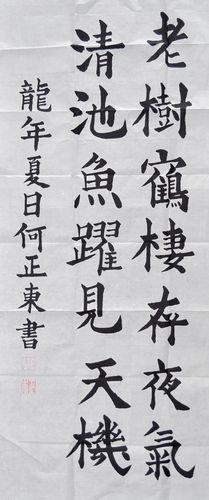 老樹窩棲存夜氣
清池魚躍見天機
龍年夏日何正東書